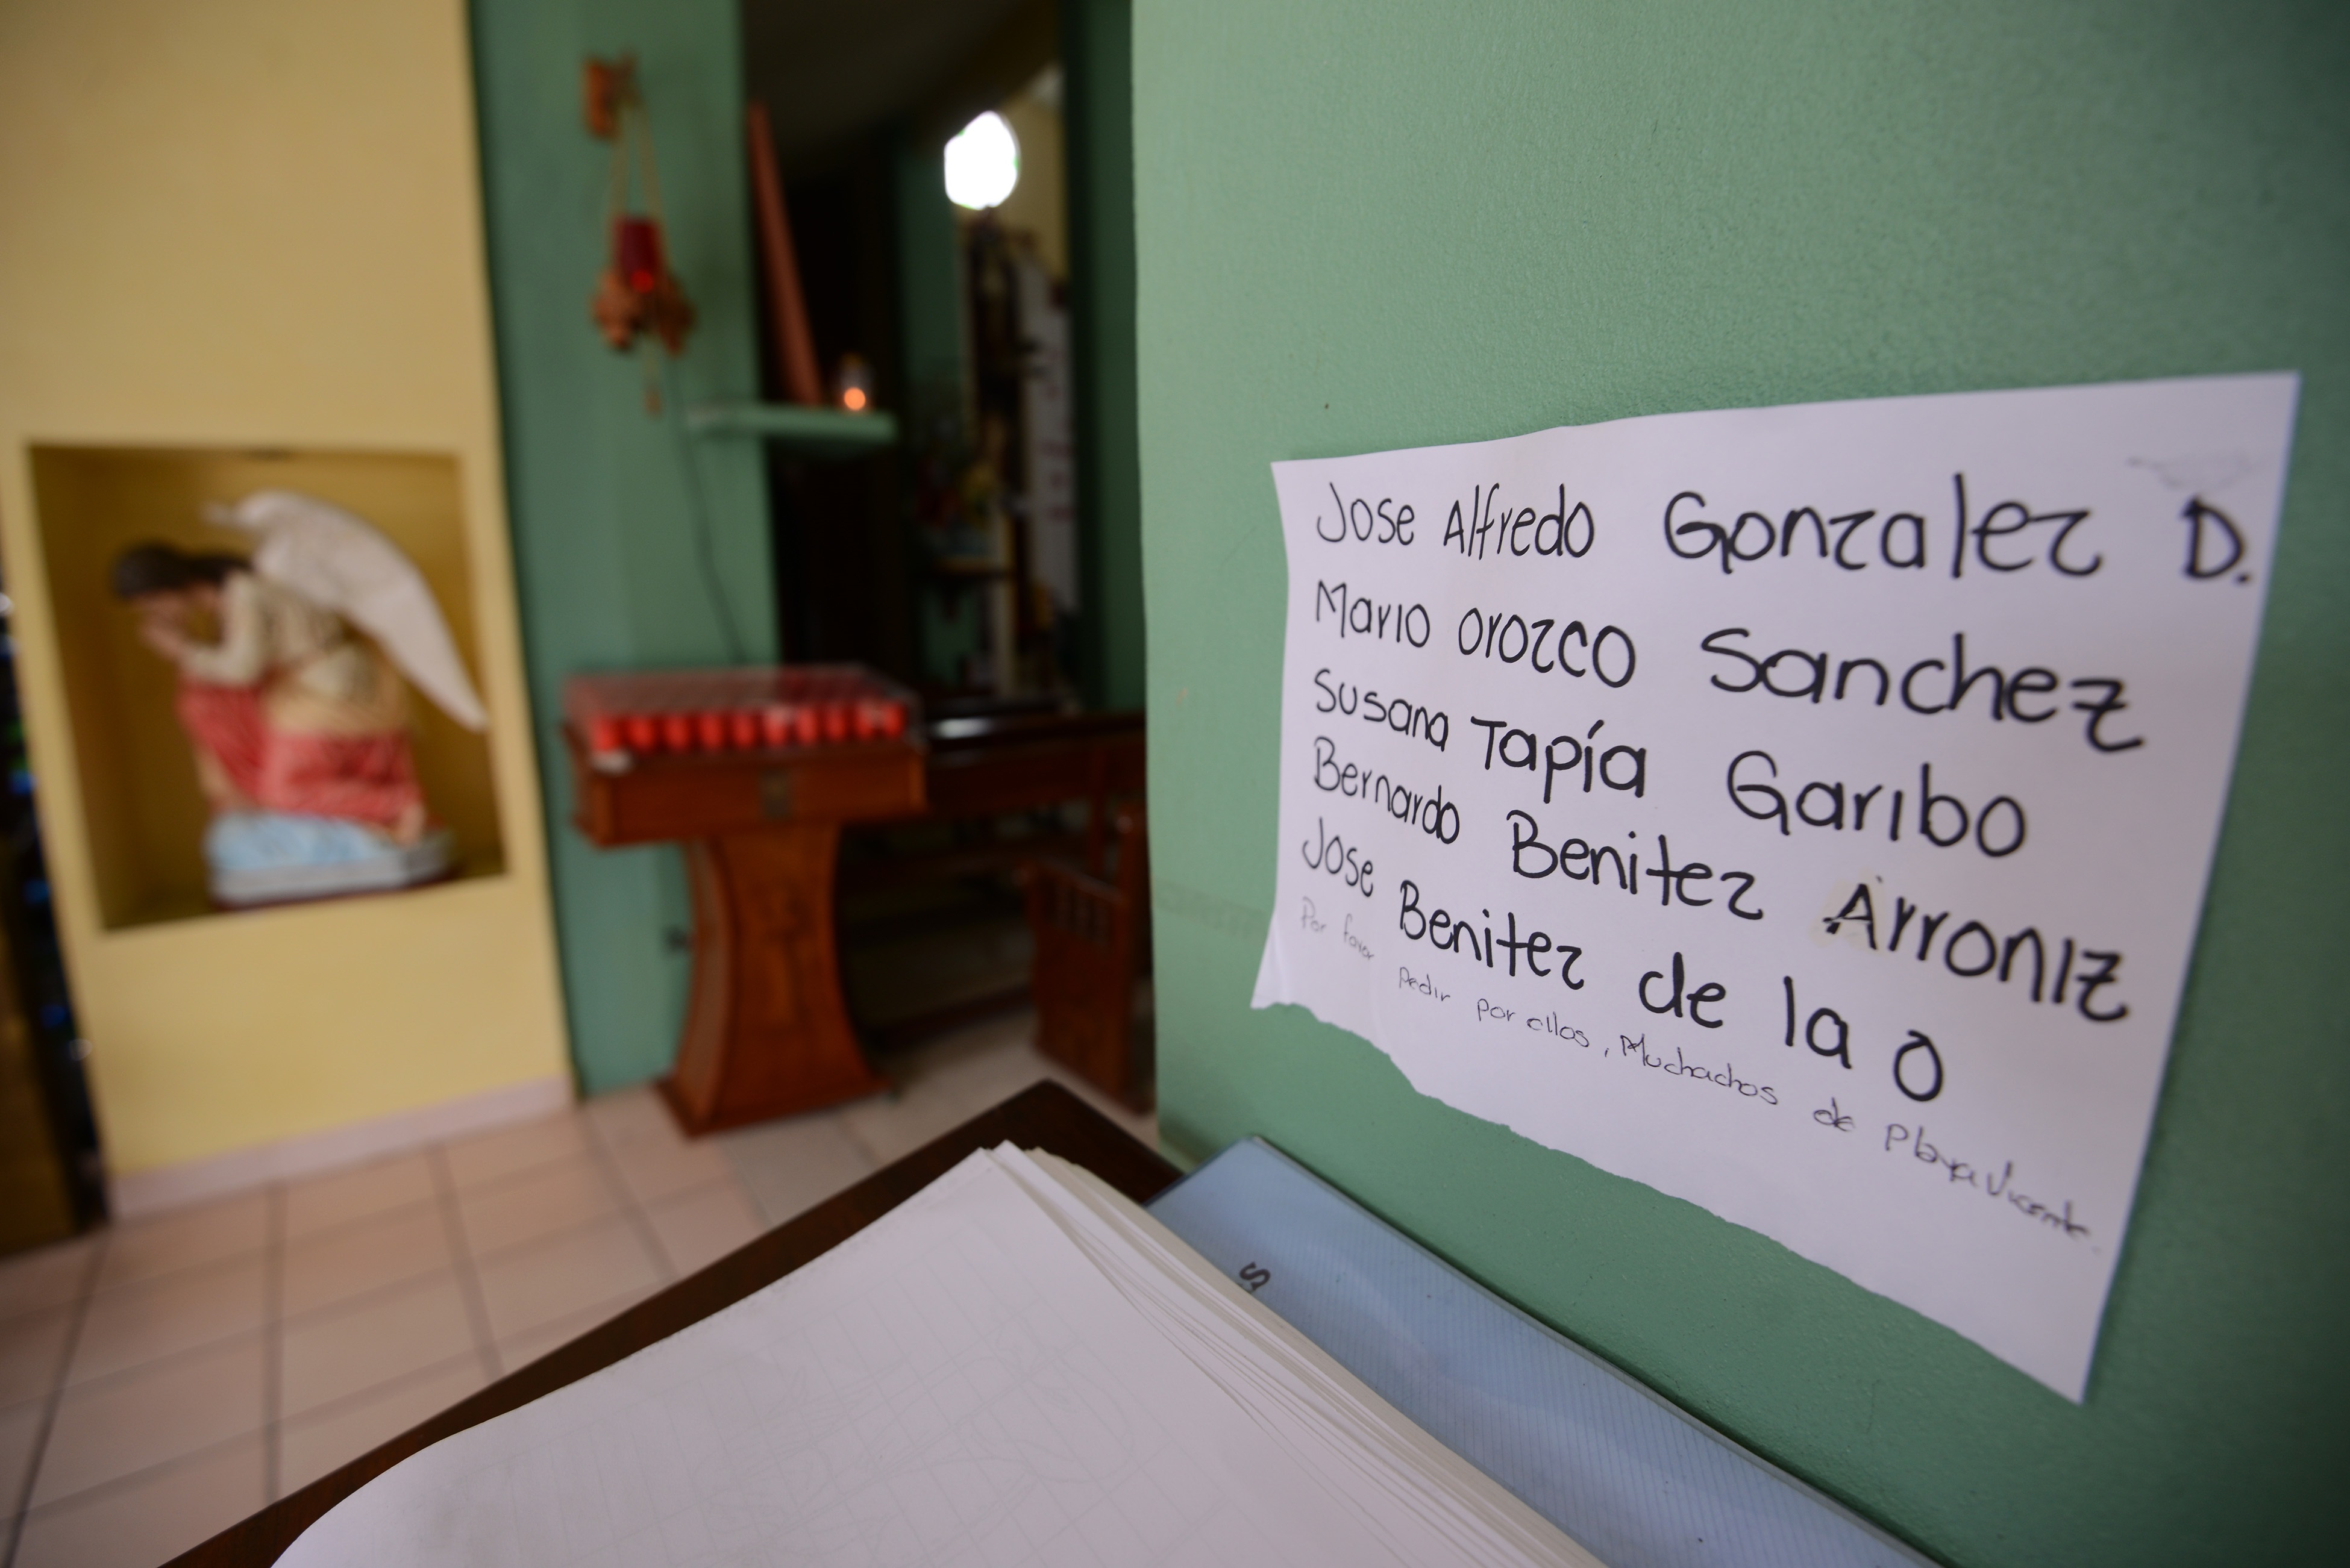 Jose Alfredo Gonzalez D.
Mario Orozco Sanchez
Susana Tapía Garibo
Bernardo Benitez Arroniz
Jose Benitez de la O
Por favor pedir por ellos, Muchachos de Playa Vicente.
S